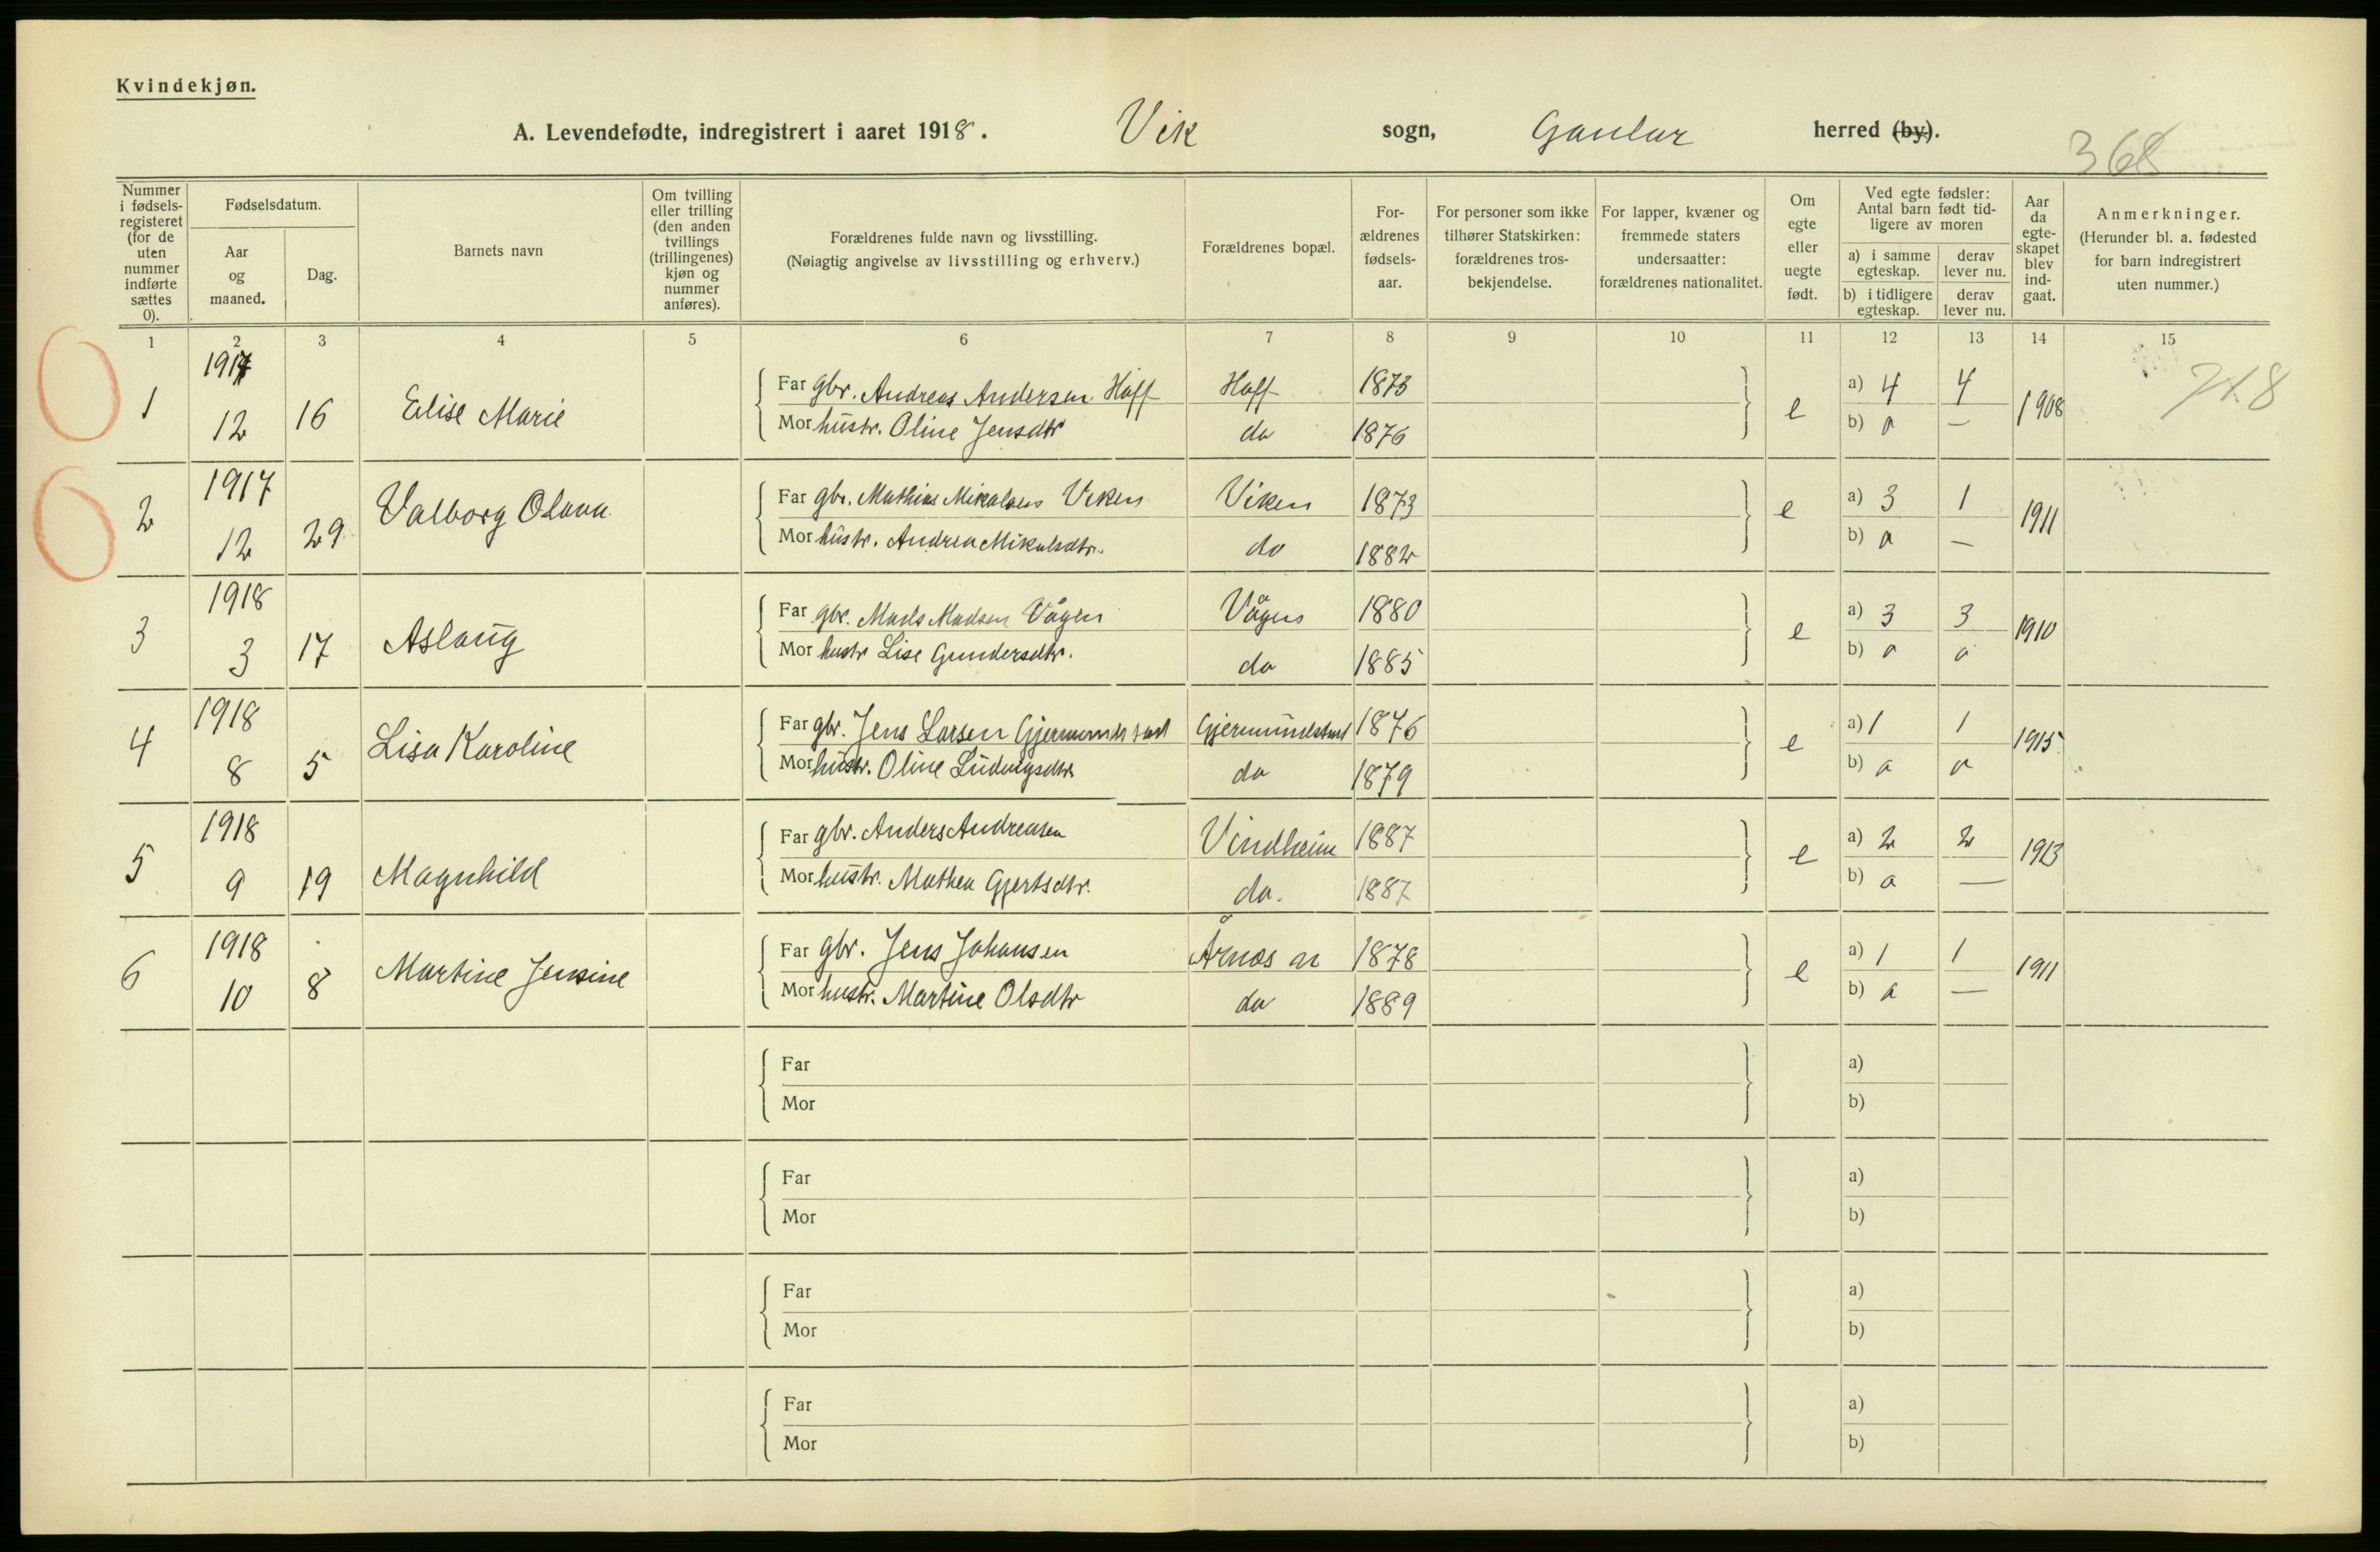 Kvindekjøn.
A. Levendefødte, indregistrert i aaret 1918. Vik sogn, Gaular herred (by).
368
Nummer i fødsels-registeret (for de uten nummer indførte sættes 0).
Fødselsdatum.
Aar og maaned.
Dag.
Barnets navn
Om tvilling eller trilling (den anden tvillings (trillingenes) kjøn og nummer anføres).
Forældrenes fulde navn og livsstilling.
(Nøiagtig angivelse av livsstilling og erhverv.)
Forældrenes bopæl.
For-ældrenes fødsels-aar.
For personer som ikke tilhører Statskirken: forældrenes tros-bekjendelse.
For lapper, kvæner og fremmede staters undersaatter: forældrenes nationalitet.
Om egte eller uegte født.
Ved egte fødsler: Antal barn født tid-ligere av moren
a) i samme egteskap.
derav lever nu.
b) i tidligere egteskap.
derav lever nu.
Aar da egte-skapet blev ind-gaat.
Anmerkninger.
(Herunder bl. a. fødested for barn indregistrert uten nummer.)
1 2 3 4 5 6 7 8 9 10 11 12 13 14 15
1 1917 12 16 Elise Marie
Far gbr. Andreas Andersen Hoff Hoff 1873 e a) 4 4 1908
Mor hustr. Oline Jensdtr do 1876 b) 0 —
2 1917 12 29 Valborg Olava
Far gbr. Mathias Mikalsen Viken Viken 1873 e a) 3 1 1911
Mor hustr. Andrea Mikalsdtr. do 1882 b) 0 —
3 1918 3 17 Aslaug
Far gbr. Mads Madsen Vågen Vågen 1880 e a) 3 3 1910
Mor hustr Lise Gundersdtr. do 1885 b) 0 0
4 1918 8 5 Lisa Karoline
Far gbr. Jens Larsen Gjermundstad Gjermundstad 1876 e a) 1 1 1915
Mor hustr. Oline Ludvigsdtr do 1879 b) 0 0
5 1918 9 19 Magnhild
Far gbr. Anders Andreasen Vindheim 1887 e a) 2 2 1913
Mor hustr. Mathea Gjertsdtr. do. 1887 b) 0 —
6 1918 10 8 Martine Jensine
Far gbr. Jens Johansen 1878 e a) 1 1 1911
Mor hustr. Martine Olsdtr do 1889 b) 0 —
Far a)
Mor b)
Far a)
Mor b)
Far a)
Mor b)
Far a)
Mor b)